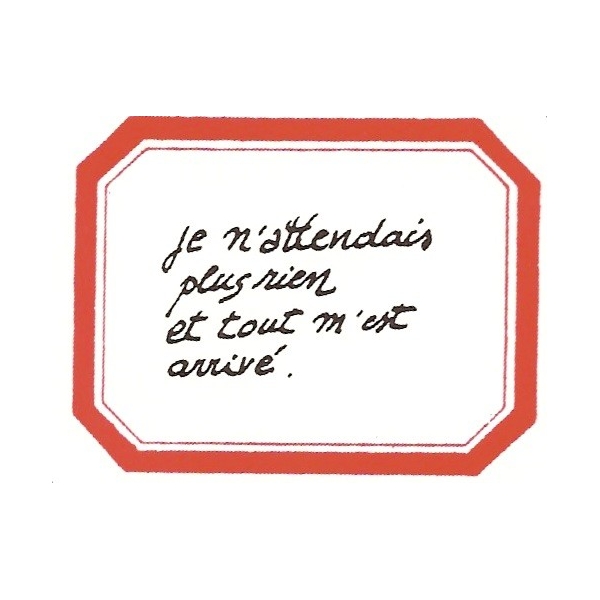 je n'attendais
plus rien
et tout m'est
arrivé.